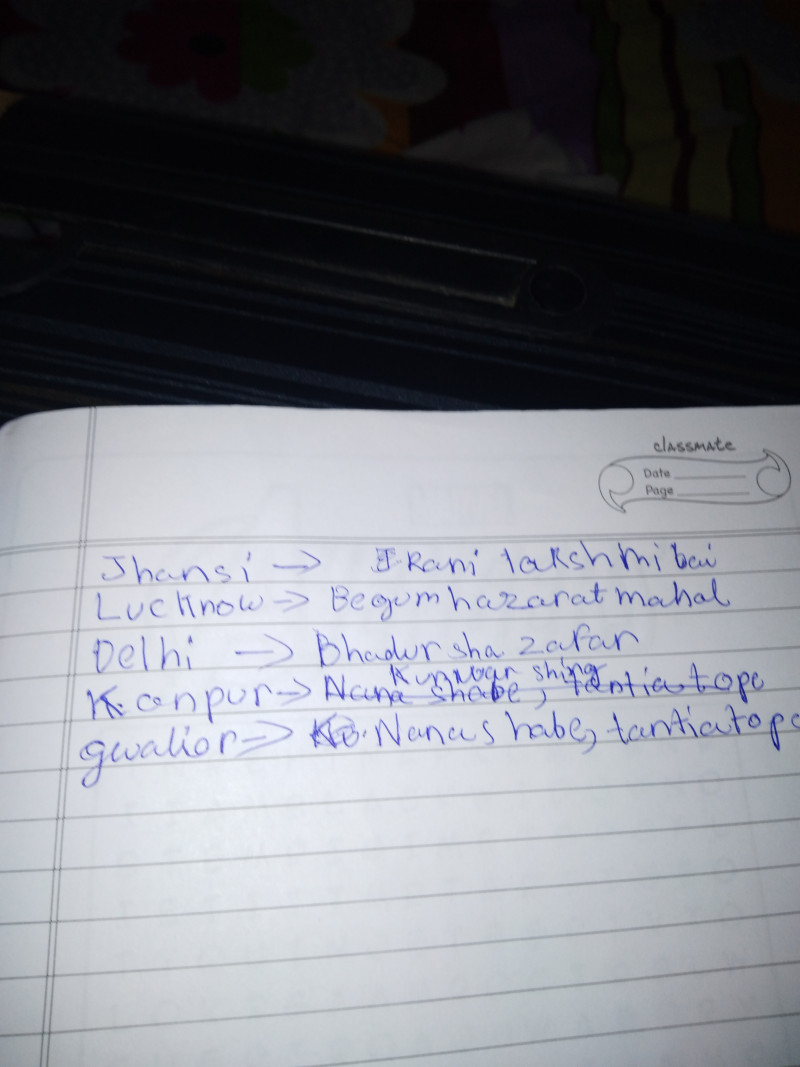 classmate
Date
Page
Jhansi → Rani lakshmi bai
Lucknow → Begum hazarat mahal
Delhi → Bhadur sha zafar
Kunwar shing
Kanpur → Nana shabe, tantia tope
gwalior → Nana shabe, tantia tope